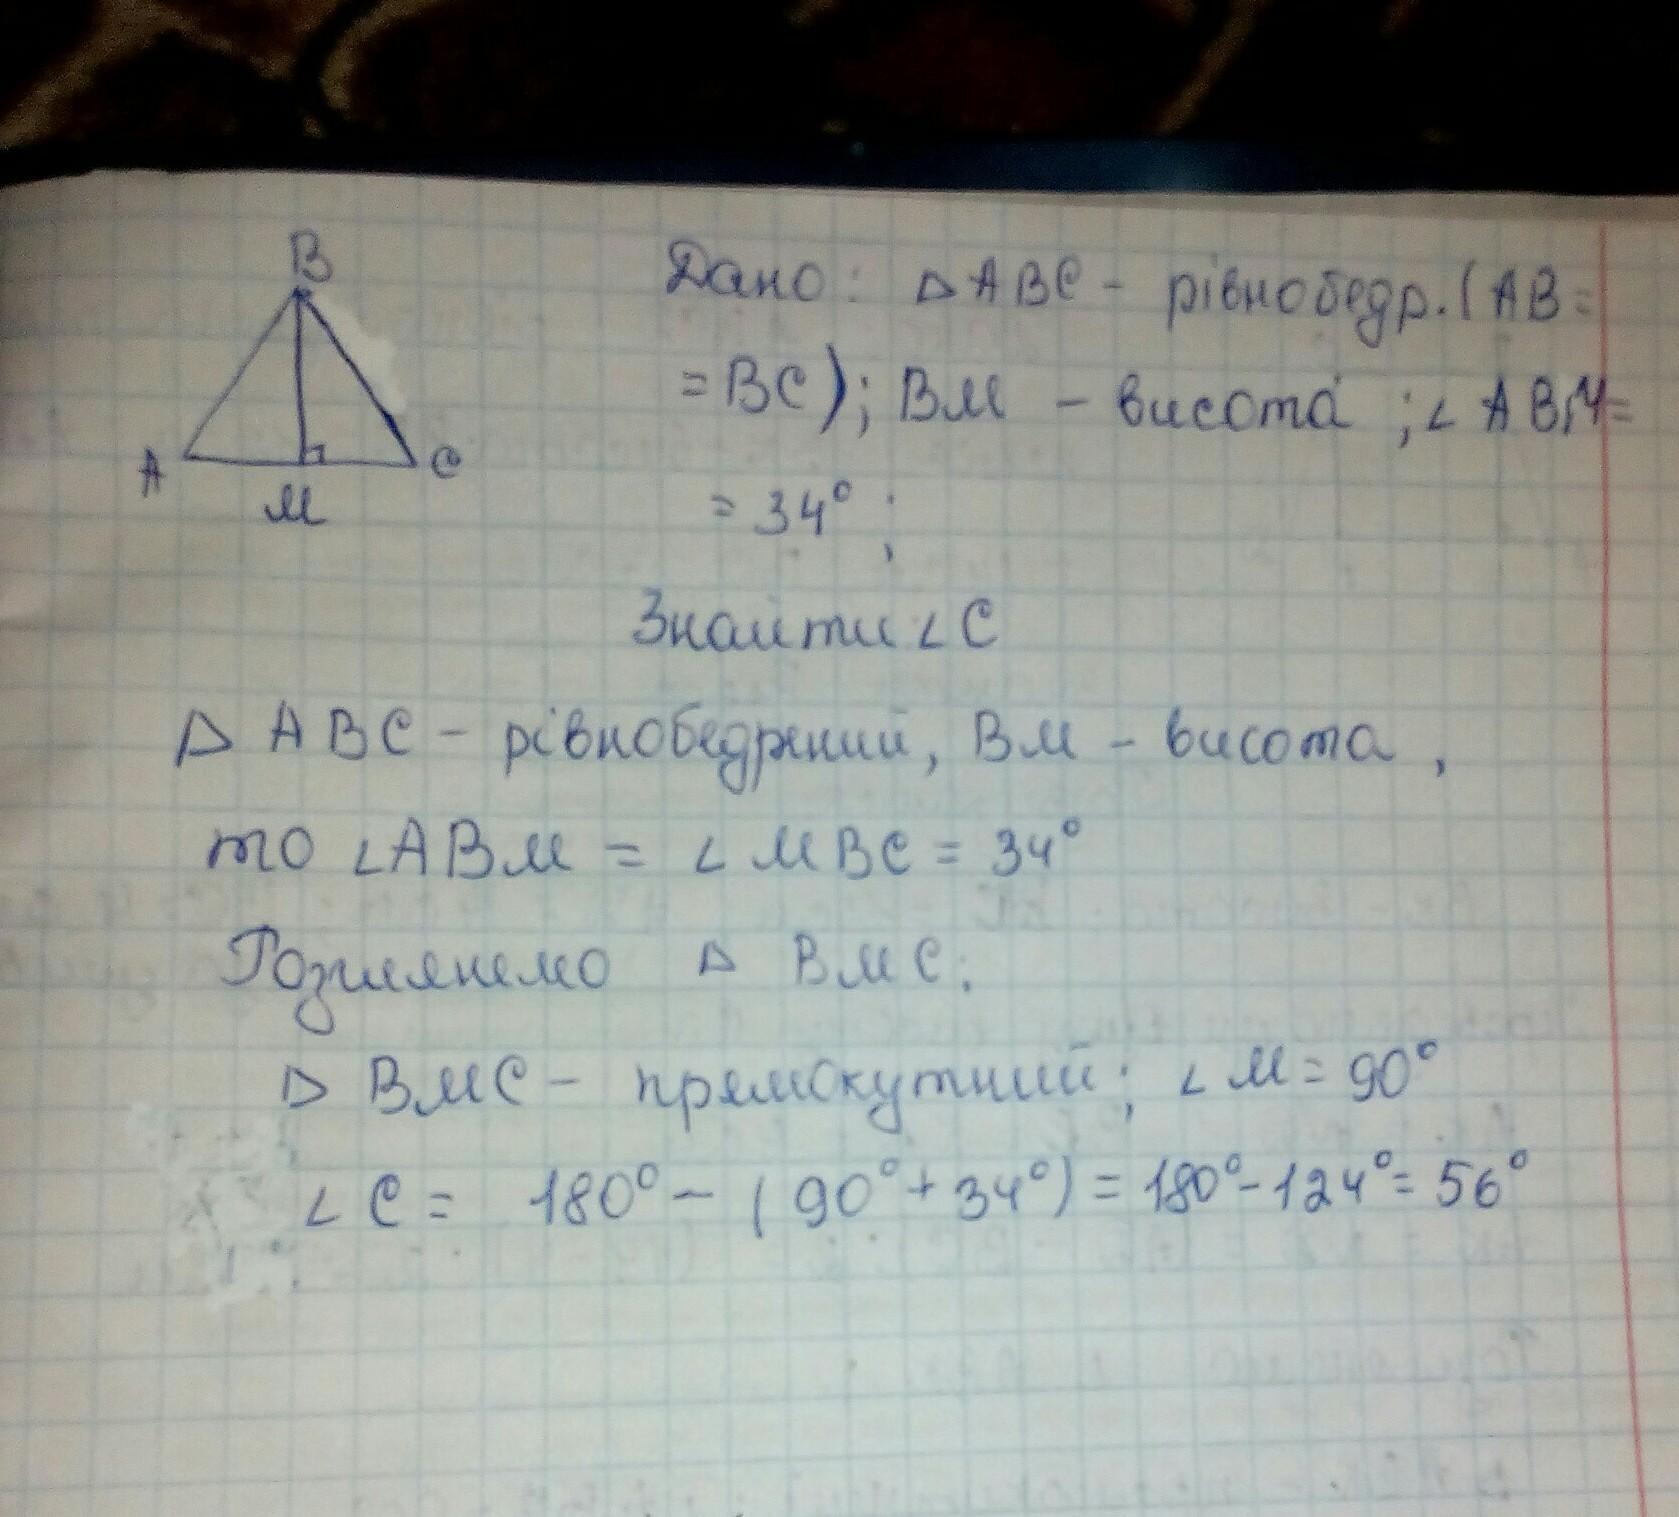 B
A
C
M
Дано: △ABC - рівнобедр. (AB=
=BC); BM - висота; ∠ABM=
= 34°;
Знайти ∠C
△ ABC - рівнобедрений, BM - висота,
то ∠ABM = ∠MBC = 34°
Розглянемо △ BMC:
△ BMC - прямокутний; ∠M = 90°
∠C = 180° - (90° + 34°) = 180° - 124° = 56°